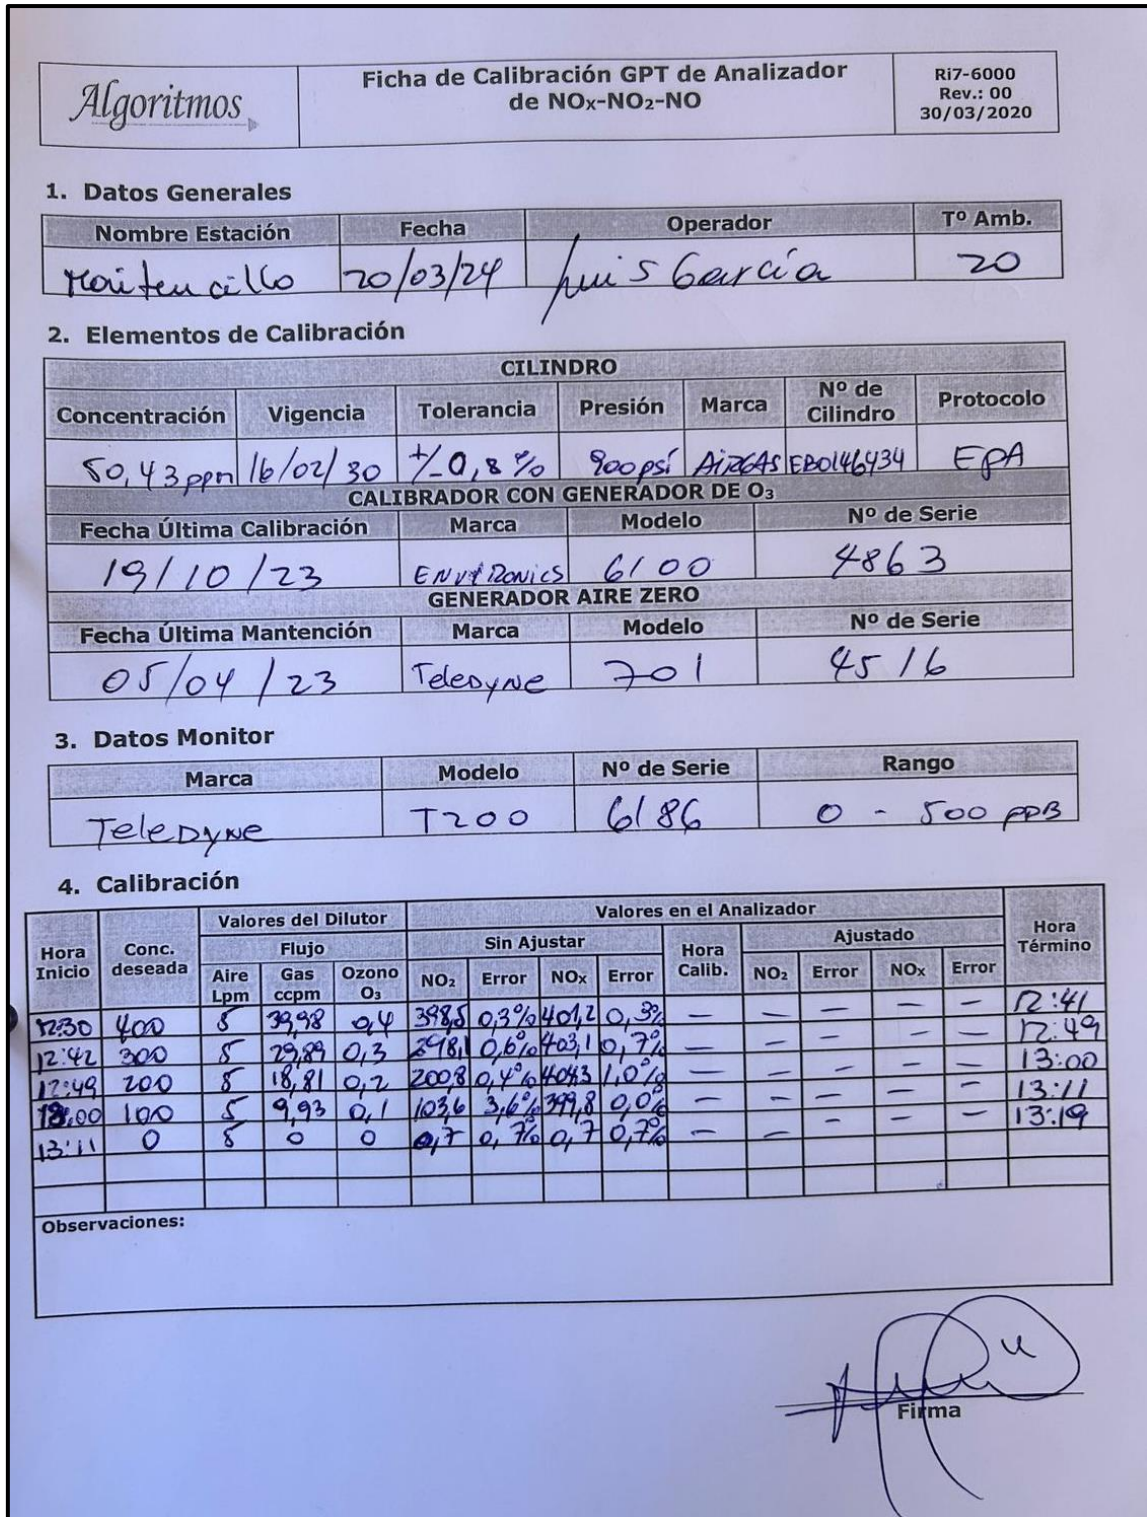 Algoritmos
Ficha de Calibración GPT de Analizador
de NOx-NO2-NO
Ri7-6000
Rev.: 00
30/03/2020
1. Datos Generales
Nombre Estación Fecha Operador Tº Amb.
Maitencillo 20/03/24 Luis García 20
2. Elementos de Calibración
CILINDRO
Concentración Vigencia Tolerancia Presión Marca Nº de Cilindro Protocolo
50,43 ppm 16/02/30 +/-0,8% 900psi AiRGAS EB0146434 EPA
CALIBRADOR CON GENERADOR DE O3
Fecha Última Calibración Marca Modelo Nº de Serie
19/10/23 ENViRONiCS 6100 4863
GENERADOR AIRE ZERO
Fecha Última Mantención Marca Modelo Nº de Serie
05/04/23 TeleDYNe 701 4516
3. Datos Monitor
Marca Modelo Nº de Serie Rango
TeleDYNe T200 6186 0 - 500 PPB
4. Calibración
Valores del Dilutor Valores en el Analizador
Hora Inicio Conc. deseada Flujo Sin Ajustar Hora Calib. Ajustado Hora Término
Aire Lpm Gas ccpm Ozono O3 NO2 Error NOx Error NO2 Error NOx Error
12:30 400 5 39,98 0,4 398,5 0,3% 401,2 0,3% — — — — — 12:41
12:42 300 5 29,89 0,3 298,1 0,6% 403,1 0,7% — — — — — 12:49
12:49 200 5 18,81 0,2 200,8 0,4% 404,3 1,0% — — — — — 13:00
13:00 100 5 9,93 0,1 103,6 3,6% 399,8 0,0% — — — — — 13:11
13:11 0 5 0 0 0,7 0,7% 0,7 0,7% — — — — — 13:19
Observaciones:
Firma